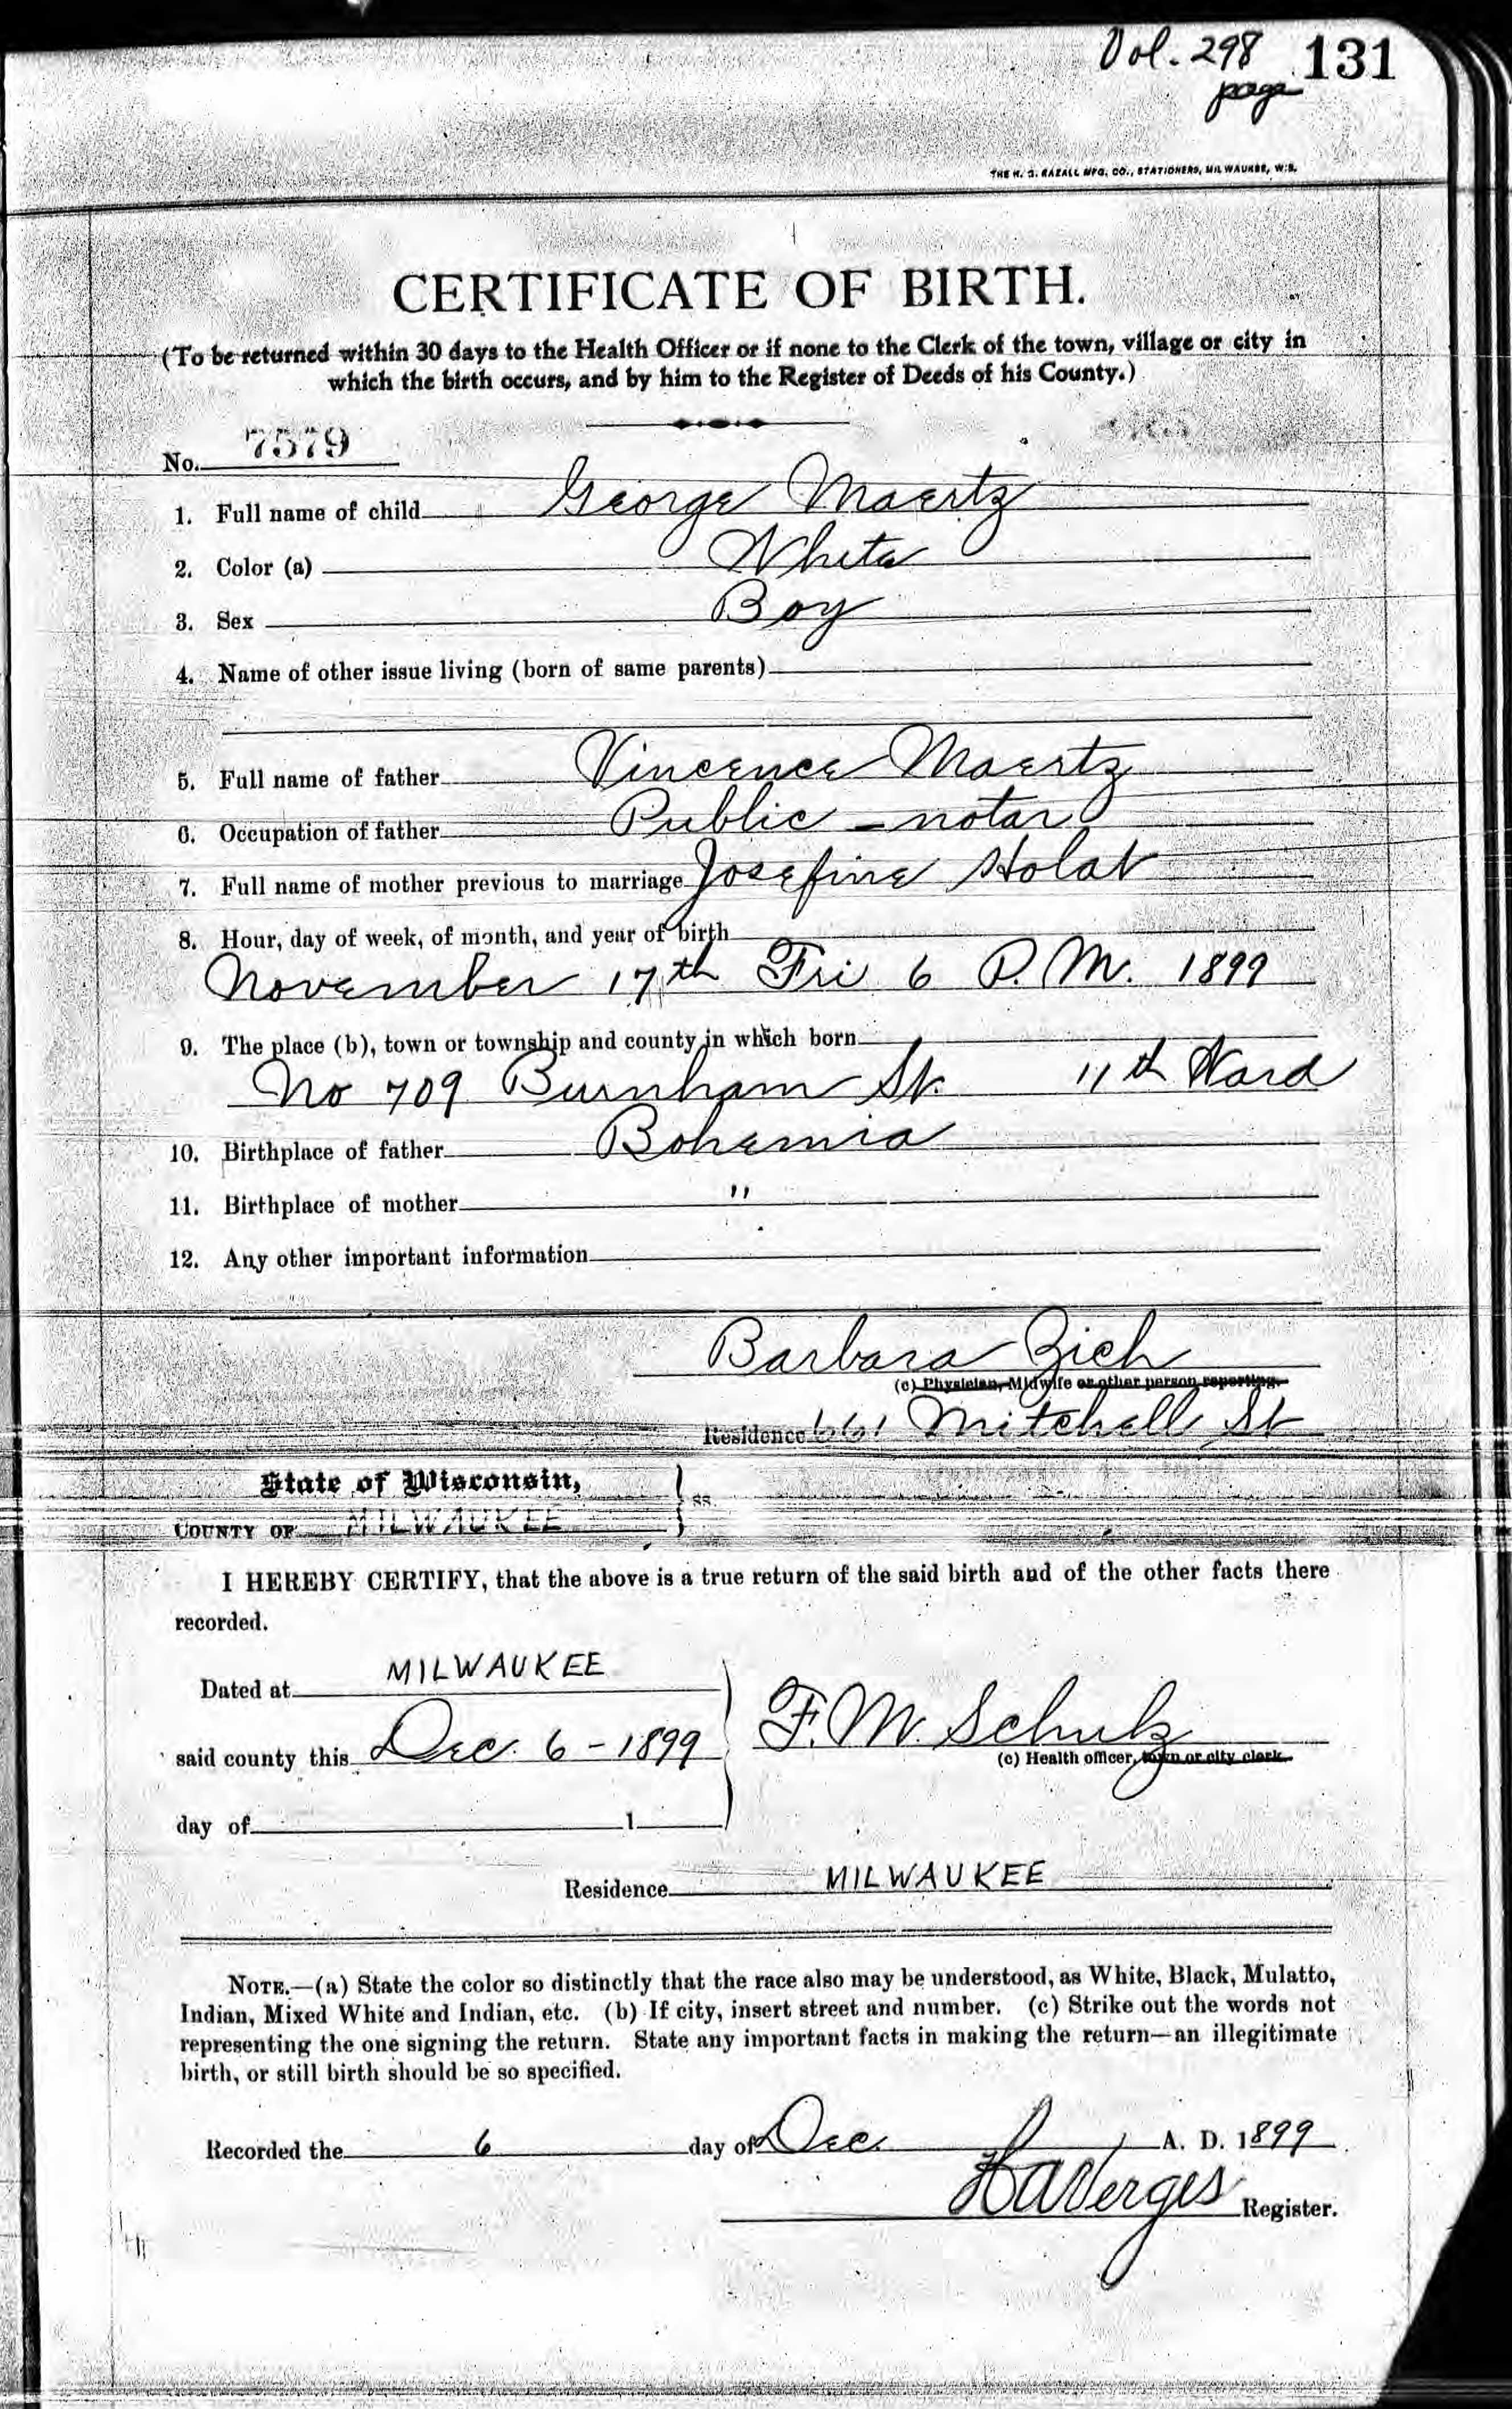 Vol. 298 131
page
THE H. G. RAZALL MFG. CO., STATIONERS, MILWAUKEE, WIS.
CERTIFICATE OF BIRTH.
(To be returned within 30 days to the Health Officer or if none to the Clerk of the town, village or city in
which the birth occurs, and by him to the Register of Deeds of his County.)
No. 7579
1. Full name of child George Maertz
2. Color (a) White
3. Sex Boy
4. Name of other issue living (born of same parents)
5. Full name of father Vincence Maertz
6. Occupation of father Public - notar
7. Full name of mother previous to marriage Josefine Holat
8. Hour, day of week, of month, and year of birth
November 17th Fri 6 P.M. 1899
9. The place (b), town or township and county in which born
No 709 Burnham St. 11th Ward
10. Birthplace of father Bohemia
11. Birthplace of mother "
12. Any other important information
Barbara Zich
(c) Physician, Midwife or other person reporting.
Residence 661 Mitchell St
State of Wisconsin,
COUNTY OF MILWAUKEE } ss.
I HEREBY CERTIFY, that the above is a true return of the said birth and of the other facts there
recorded.
Dated at MILWAUKEE
said county this Dec. 6 - 1899 F. M. Schulz
(c) Health officer, town or city clerk.
day of 1
Residence MILWAUKEE
NOTE.—(a) State the color so distinctly that the race also may be understood, as White, Black, Mulatto,
Indian, Mixed White and Indian, etc. (b) If city, insert street and number. (c) Strike out the words not
representing the one signing the return. State any important facts in making the return—an illegitimate
birth, or still birth should be so specified.
Recorded the 6 day of Dec. A. D. 1899
Register.